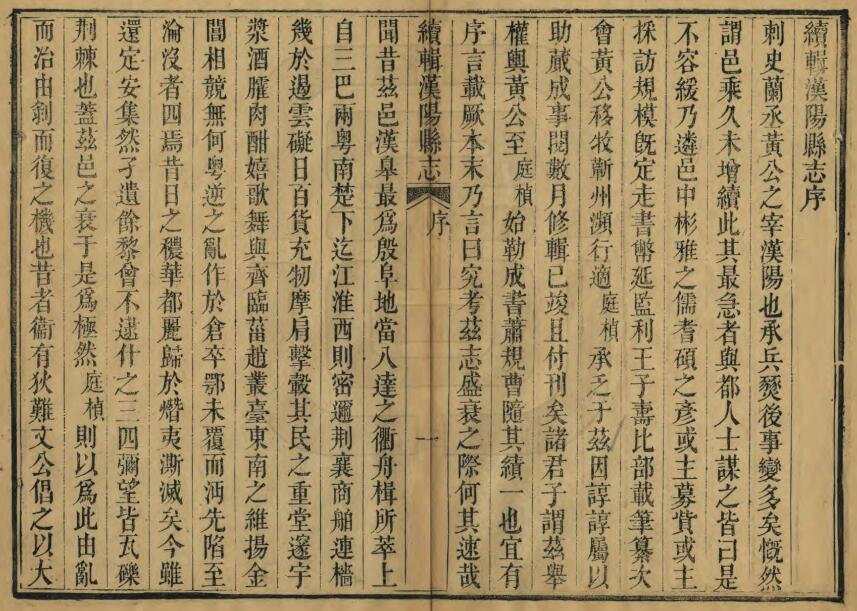 續輯漢陽縣志序
刺史蘭丞黃公之宰漢陽也承兵燹後事變多矣慨然
謂邑乘久未增續此其最急者與都人士謀之皆曰是
不容緩乃遴邑中彬雅之儒耆碩之彦或主募貲或主
採訪規模既定走書幣延監利王子壽比部載筆纂次
會黃公移牧蘄州瀕行適庭楨承乏于茲因諄諄屬以
助蕆成事閱數月修輯已竣且付刊矣諸君子謂茲舉
權輿黃公至庭楨始勒成書蕭規曹隨其績一也宜有
序言載厥本末乃言曰究考茲志盛衰之際何其速哉
續輯漢陽縣志
序
一
聞昔茲邑漢皋最爲殷阜地當八達之衢舟楫所萃上
自三巴兩粵南楚下迄江淮西則密邇荆襄商舶連檣
幾於遏雲礙日百貨充牣摩肩擊轂其民之重堂邃宇
漿酒臛肉酣嬉歌舞與齊臨菑趙叢臺東南之維揚金
閶相競無何粵逆之亂作於倉卒鄂未覆而沔先陷至
淪沒者四焉昔日之穠華都麗歸於熸夷澌滅矣今雖
還定安集然孑遺餘黎曾不逮什之三四彌望皆瓦礫
荆棘也蓋茲邑之衰于是爲極然庭楨則以爲此由亂
而治由剝而復之機也昔者衞有狄難文公倡之以大